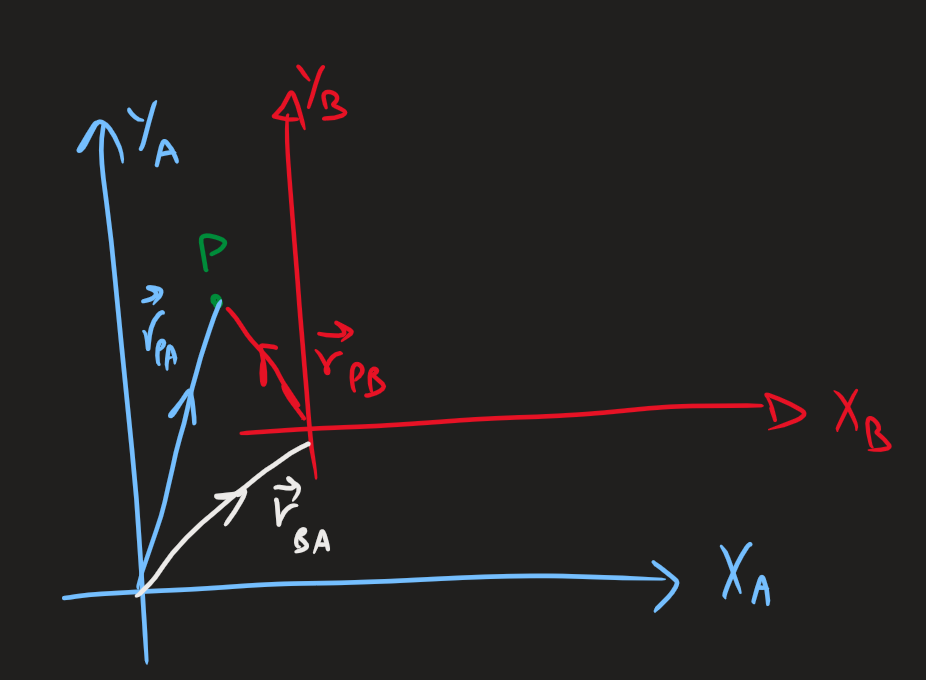 Y_B
Y_A
P
r⃗_PA
r⃗_PB
X_B
r⃗_BA
X_A